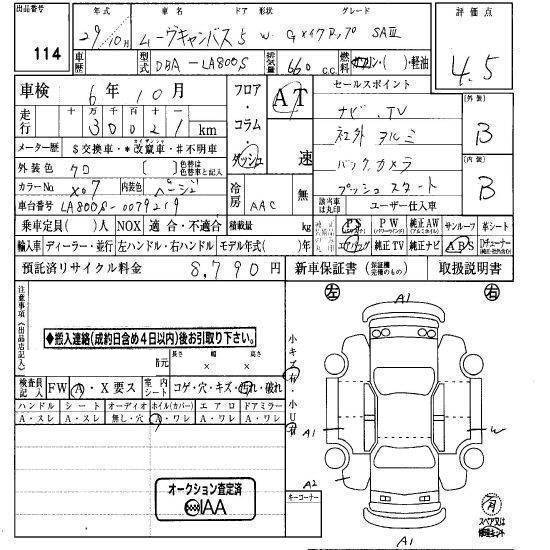 出品番号
114
年式 車名 ドア 形状 グレード
29/10月 ムーヴキャンバス 5 W Gメイクアップ SAⅢ
評価点
4.5
車歴
型式 DBA-LA800S
排気量 660 c.c.
燃料 ガソリン・軽油
車検 6年10月
フロア・コラム・ダッシュ
AT
速
セールスポイント
ナビ、TV
社外アルミ
バックカメラ
プッシュスタート
[外装]
B
[内装]
B
走行 十万千百十一
30021 km
メーター歴 $交換車・*改竄車・#不明車
外装色 クロ [ ] 色替は色替車と記入
カラーNo. X07 内装色 ベージュ
冷房 AAC 無
該当車は丸印 ユーザー仕入車
車台番号 LA800S-0079219
乗車定員( )人 NOX 適合・不適合 積載量 kg
PS (パワステ) PW (パワーウインド) 純正AW (アルミホイル) サンルーフ 革シート
輸入車 ディーラー・並行 左ハンドル・右ハンドル モデル年式( )年
エアバッグ 純正TV 純正ナビ ABS
預託済リサイクル料金 8,790円
新車保証書 (保証継完備のもの) 取扱説明書
注意事項(出品店記入)
◆搬入連絡(成約日含め4日以内)後お引取り下さい。
長さ 幅 高さ
× ×
諸元
検査員記入 FW Ⓐ・X要ス 室内シート コゲ・穴・キズ・汚れ・破れ
ハンドル シート オーディオ ホイル(カバー) エアロ ドアミラー
A・スレ A・スレ 無し・穴 A・ワレ A・ワレ A・ワレ
小キズ有
小U有
キーコーナー
オークション査定済
AIAA
左 右
A1
A1
W
A2
A1
有
スペア又は修理キット